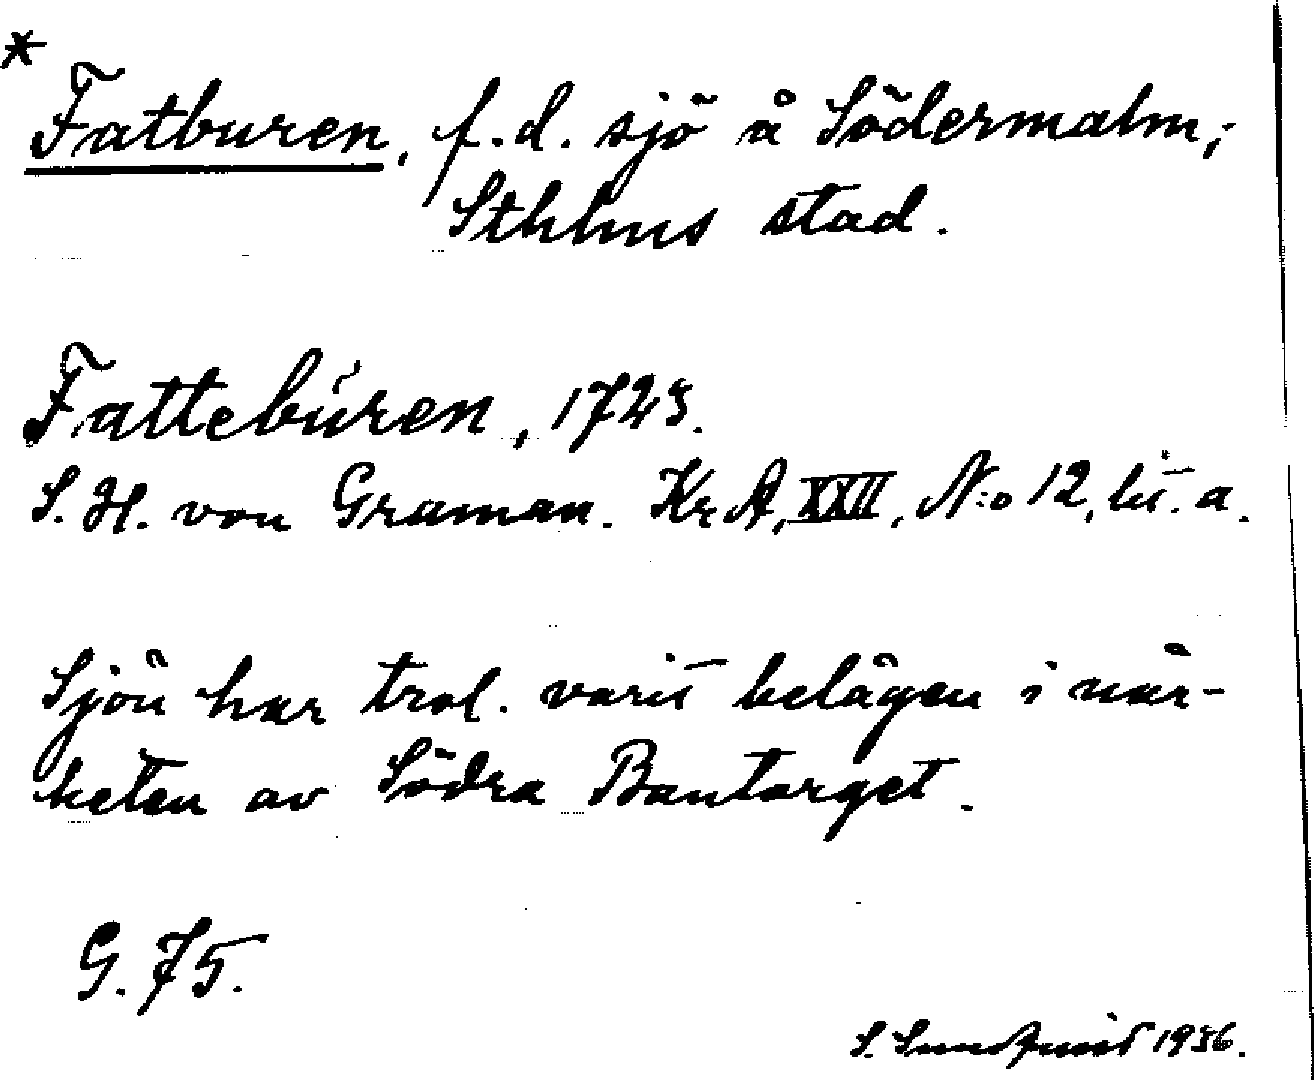 *
Fatburen, f.d. sjö å Södermalm;
Sthlms stad.
Fattebŭren, 1723.
S. H. von Graman. Kr A, XXII, N:o 12, lit. a.
Sjön har trol. varit belägen i när-
heten av Södra Bantorget.
G. 75.
S. Sundqvist 1936.